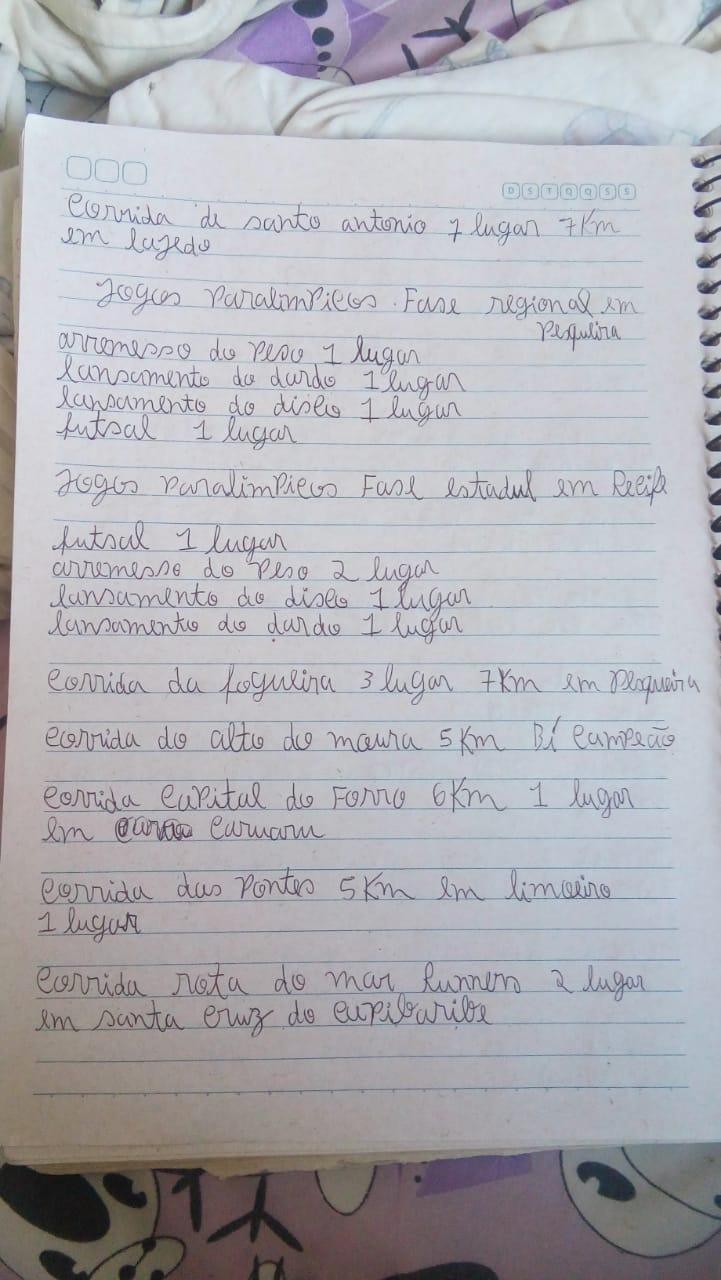 D S T Q Q S S
Corrida de santo antonio 7 lugar 7Km
em lajedo
Jogos Paralimpicos. Fase regional em
Pesqueira
arremesso do peso 1 lugar
lansamento do dardo 1 lugar
lansamento do disco 1 lugar
futsal 1 lugar
Jogos Paralimpicos Fase estadul em Recife
futsal 1 lugar
arremesso do peso 2 lugar
lansamento do disco 1 lugar
lansamento do dardo 1 lugar
Corrida da fogueira 3 lugar 7Km em Pesqueira
Corrida do alto do moura 5Km Bí Campeão
Corrida Capital do Forro 6Km 1 lugar
em Caruaru
Corrida das Pontes 5Km em limoeiro
1 lugar
Corrida rota do mar Runners 2 lugar
em santa Cruz do Capibaribe